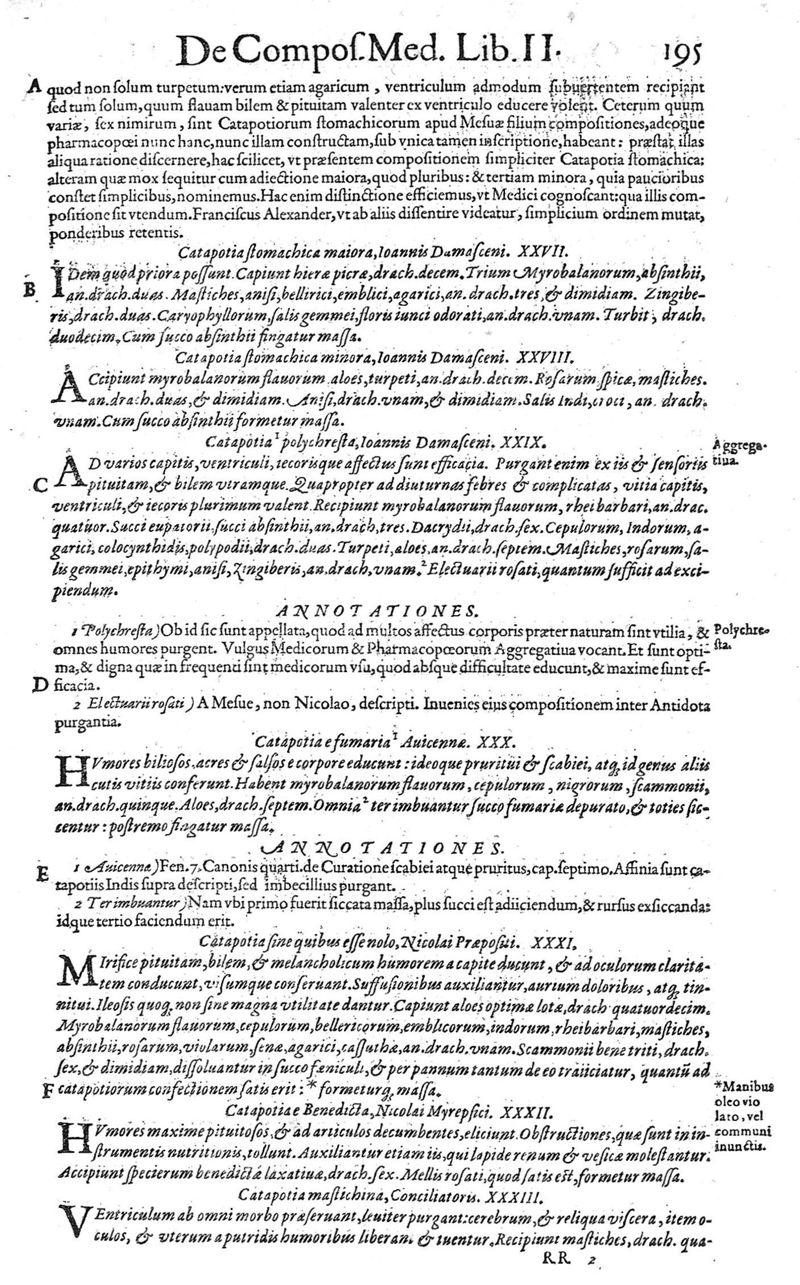 De Compos. Med. Lib. II. 195
A quod non solum turpetum: verum etiam agaricum, ventriculum admodum subuertentem recipiant
sed tum solum, quum flauam bilem & pituitam valenter ex ventriculo educere volent. Ceterum quum
variæ, sex nimirum, sint Catapotiorum stomachicorum apud Mesuæ filium compositiones, adeoque
pharmacopœi nunc hanc, nunc illam constructam, sub vnica tamen inscriptione, habeant: præstat illas
aliqua ratione discernere, hac scilicet, vt præsentem compositionem simpliciter Catapotia stomachica:
alteram quæ mox sequitur cum adiectione maiora, quod pluribus: & tertiam minora, quia paucioribus
constet simplicibus, nominemus. Hac enim distinctione efficiemus, vt Medici cognoscant: qua illis com-
positione sit vtendum. Franciscus Alexander, vt ab aliis dissentire videatur, simplicium ordinem mutat,
ponderibus retentis.
Catapotia stomachica maiora, Ioannis Damasceni. XXVII.
IDem quod priora possunt. Capiunt hieræ picræ, drach. decem. Trium Myrobalanorum, absinthii,
B an. drach. duas. Mastiches, anisi, bellirici, emblici, agarici, an. drach. tres, & dimidiam. Zingibe-
ris, drach. duas. Caryophyllorum, salis gemmei, floris iunci odorati, an. drach. vnam. Turbit, drach.
duodecim. Cum succo absinthii fingatur massa.
Catapotia stomachica minora, Ioannis Damasceni. XXVIII.
ACcipiunt myrobalanorum flauorum, aloes, turpeti, an. drach. decem. Rosarum, spicæ, mastiches.
an. drach. duas, & dimidiam. Anisi, drach. vnam, & dimidiam. Salis Indi, croci, an. drach.
vnam. Cum succo absinthii formetur massa.
Catapotia 1 polychresta, Ioannis Damasceni. XXIX.
Aggrega-
tiua.
AD varios capitis, ventriculi, iecorisque affectus sunt efficacia. Purgant enim ex iis & sensoriis
C pituitam, & bilem vtramque. Quapropter ad diuturnas febres & complicatas, vitia capitis,
ventriculi, & iecoris plurimum valent. Recipiunt myrobalanorum flauorum, rhei barbari, an. drac.
quatuor. Succi eupatorii, succi absinthii, an. drach, tres. Dacrydii, drach. sex. Cepulorum, Indorum, a-
garici, colocynthidis, polypodii, drach. duas. Turpeti, aloes, an. drach. septem. Mastiches, rosarum, sa-
lis gemmei, epithymi, anisi, zingiberis, an. drach, vnam. 2 Electuarii rosati, quantum sufficit ad exci-
piendum.
ANNOTATIONES.
1 Polychresta) Ob id sic sunt appellata, quod ad multos affectus corporis præter naturam sint vtilia, &
Polychre-
sta.
omnes humores purgent. Vulgus Medicorum & Pharmacopœorum Aggregatiua vocant. Et sunt opti-
ma, & digna quæ in frequenti sint medicorum vsu, quod absque difficultate educunt, & maxime sunt ef-
D ficacia.
2 Electuarii rosati) A Mesue, non Nicolao, descripti. Inuenies eius compositionem inter Antidota
purgantia.
Catapotia e fumaria 1 Auicennæ. XXX.
HVmores biliosos, acres & salsos e corpore educunt: ideoque pruritui & scabiei, atq; id genus aliis
cutis vitiis conferunt. Habent myrobalanorum flauorum, cepulorum, nigrorum, scammonii,
an. drach. quinque. Aloes, drach. septem. Omnia 2 ter imbuantur succo fumariæ depurato, & toties sic-
centur: postremo fingatur massa.
ANNOTATIONES.
E 1 Auicennæ) Fen. 7. Canonis quarti. de Curatione scabiei atque pruritus, cap. septimo. Affinia sunt ca-
tapotiis Indis supra descripti, sed imbecillius purgant.
2 Ter imbuantur) Nam vbi primo fuerit siccata massa, plus succi est adiiciendum, & rursus exsiccanda:
idque tertio faciendum erit.
Catapotia sine quibus esse nolo, Nicolai Præpositi. XXXI.
MIrifice pituitam, bilem, & melancholicum humorem a capite ducunt, & ad oculorum clarita-
tem conducunt, visumque conseruant. Suffusionibus auxiliantur, aurium doloribus, atq; tin-
nitui. Ileosis quoq; non sine magna vtilitate dantur. Capiunt aloes optimæ lotæ, drach quatuordecim.
Myrobalanorum flauorum, cepulorum, bellericorum, emblicorum, indorum, rhei barbari, mastiches,
absinthii, rosarum, violarum, senæ, agarici, cassuthæ, an. drach. vnam. Scammonii bene triti, drach.
sex, & dimidiam, dissoluantur in succo fœniculi, & per pannum tantum de eo traiiciatur, quantū ad
F catapotiorum confectionem satis erit: * formeturq; massa.
*Manibus
oleo vio
lato, vel
communi
inunctis.
Catapotia e Benedicta, Nicolai Myrepsici. XXXII.
HVmores maxime pituitosos, & ad articulos decumbentes, eliciunt. Obstructiones, quæ sunt in in-
strumentis nutritionis, tollunt. Auxiliantur etiam iis, qui lapide renum & vesicæ molestantur.
Accipiunt specierum benedictæ laxatiuæ, drach. sex. Mellis rosati, quod satis est, formetur massa.
Catapotia mastichina, Conciliatoris. XXXIII.
VEntriculum ab omni morbo præseruant, leuiter purgant: cerebrum, & reliqua viscera, item o-
culos, & vterum a putridis humoribus liberant & tuentur. Recipiunt mastiches, drach. qua-
RR 2